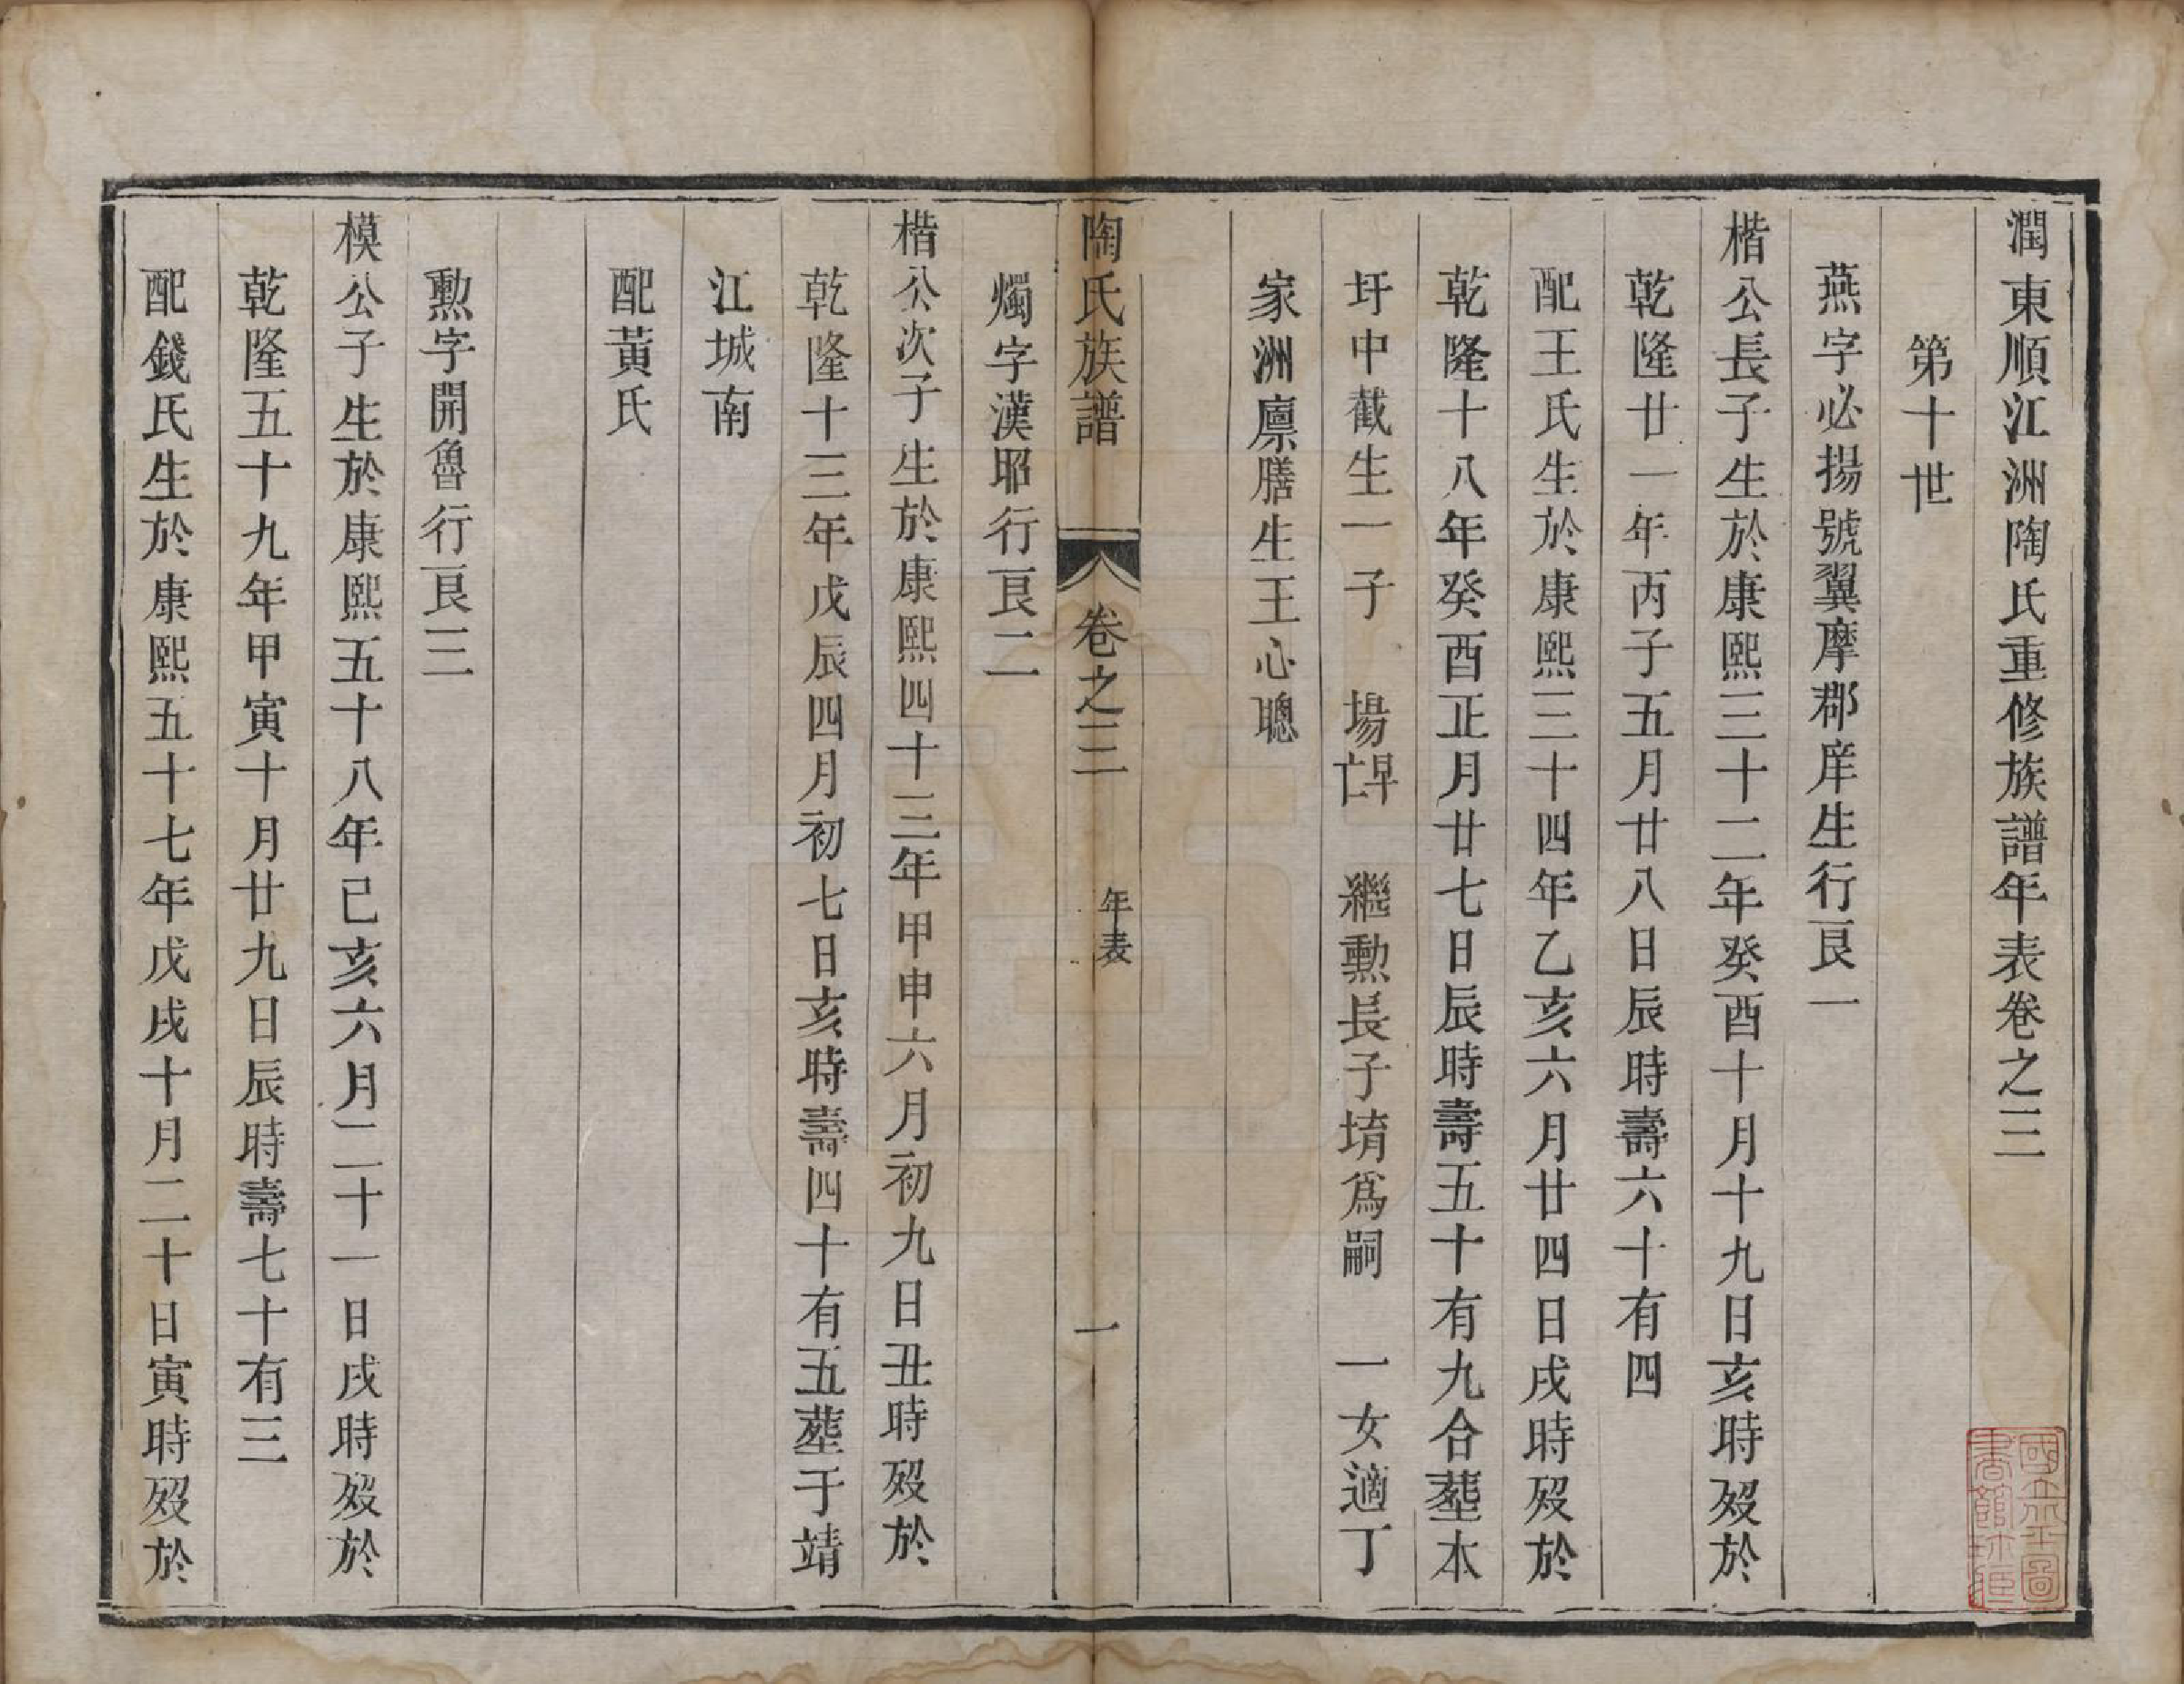 潤東順江洲陶氏重修族譜年表卷之三
第十世
燕字必揚號翼摩郡庠生行艮一
楷公長子生於康熙三十二年癸酉十月十九日亥時歿於
乾隆廿一年丙子五月廿八日辰時壽六十有四
配王氏生於康熙三十四年乙亥六月廿四日戌時歿於
乾隆十八年癸酉正月廿七日辰時壽五十有九合塟本
圩中截生一子 塲早亡 繼勳長子堉爲嗣 一女適丁
家洲廪膳生王心聰
陶氏族譜 卷之三 年表 一
燭字漢昭行艮二
楷公次子生於康熙四十三年甲申六月初九日丑時歿於
乾隆十三年戊辰四月初七日亥時壽四十有五塟于靖
江城南
配黃氏
勲字開魯行艮三
模公子生於康熙五十八年己亥六月二十一日戌時歿於
乾隆五十九年甲寅十月廿九日辰時壽七十有三
配錢氏生於康熙五十七年戊戌十月二十日寅時歿於
國立北平圖
書館珍藏